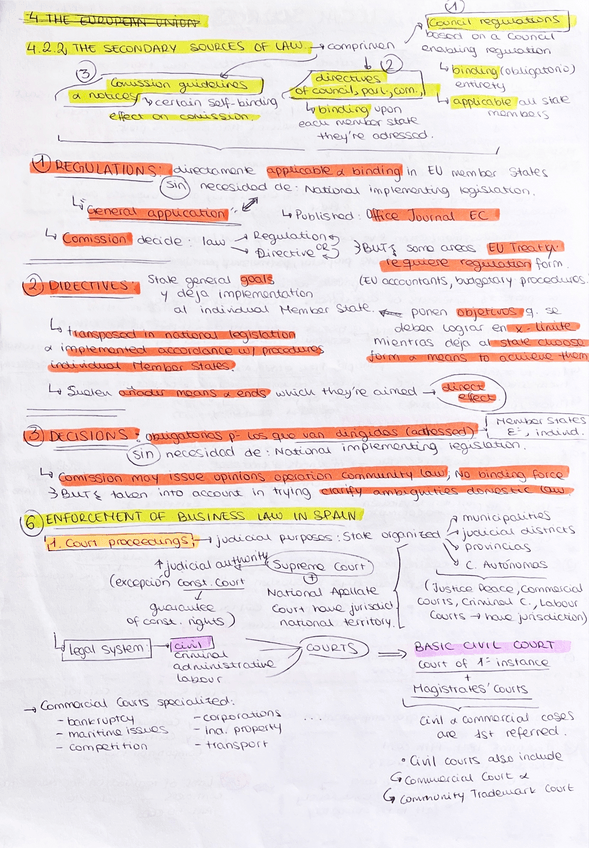 4. THE EUROPEAN UNION
①
Council regulations
based on a Council
enabling regulation
↳ binding (obligatorio)
entirety
↳ applicable all state
members
4.2.2. THE SECONDARY SOURCES OF LAW. → comprises
③
Comission guidelines
& notices ↳ certain self-binding
effect on comission
②
directives
of council, parl, com.
↳ binding upon
each member state
they're adressed.
① REGULATIONS: directamente applicable & binding in EU member States
sin necesidad de: National implementing legislation.
↳ "General application"
↳ Published: Office Journal EC
↳ Comission decide: law → Regulation
or
→ Directive
BUT some areas EU Treaty
requiere regulation form.
(EU accountants, budgetary procedures.
② DIRECTIVES: State general goals
y deja implementation
al individual Member State.
ponen objetivos q. se
deben lograr en x-límite
mientras deja al state choose
form & means to achieve them
↳ transposed in national legislation
& implemented accordance w/ procedures
individual Member States.
↳ Suelen añadir means & ends which they're aimed → direct
effect
③ DECISIONS: obligatorias p- los que van dirigidas (adressed)
Member States
E², individ.
sin necesidad de: National implementing legislation.
↳ Comission may issue opinions operation community law, No binding force
BUT taken into account in trying clarify ambiguities domestic law
⑥ ENFORCEMENT OF BUSINESS LAW IN SPAIN
1. Court proceedings: → judicial purposes: State organized
municipalities
judicial districts
provincias
C. Autónomas
(Justice Peace, Commercial
Courts, Criminal C., Labour
Courts → have jurisdiction)
↑ judicial authority Supreme Court
(excepción Const. Court
↓
guarantee
of const. rights)
+
National Appellate
Court have jurisdict
national territory.
↳ legal System: → civil
criminal
administrative
labour
COURTS ⇒ BASIC CIVIL COURT
Court of 1ª instance
+
Magistrates' Courts
Civil & commercial cases
are 1st referred.
• Civil courts also include
↳ Commercial Court &
↳ Community Trademark Court
→ Commercial Courts specialized:
- bankruptcy
- maritime issues
- competition
- corporations
- ind. property
- transport
...